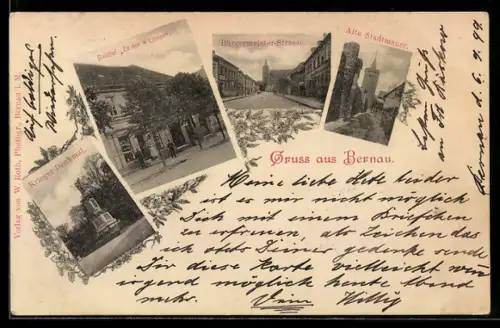 Gasthof „Zu den 4 Linden“.
Bürgermeister-Strasse.
Alte Stadtmauer.
Krieger-Denkmal.
Gruss aus Bernau.
Verlag von W. Roth, Photogr., Bernau i. M.
Auf baldiges
Wiedersehen
Besten Gruß
an
Bernau d. 6. 9. 99.
Meine liebe leider
ist es mir nicht möglich
Dich mit einem Briefchen
zu erfreuen, als Zeichen das
ich stets Deiner gedenke sende
Dir diese Karte vielleicht wenn
irgend möglich heute Abend
mehr. Dein Willy